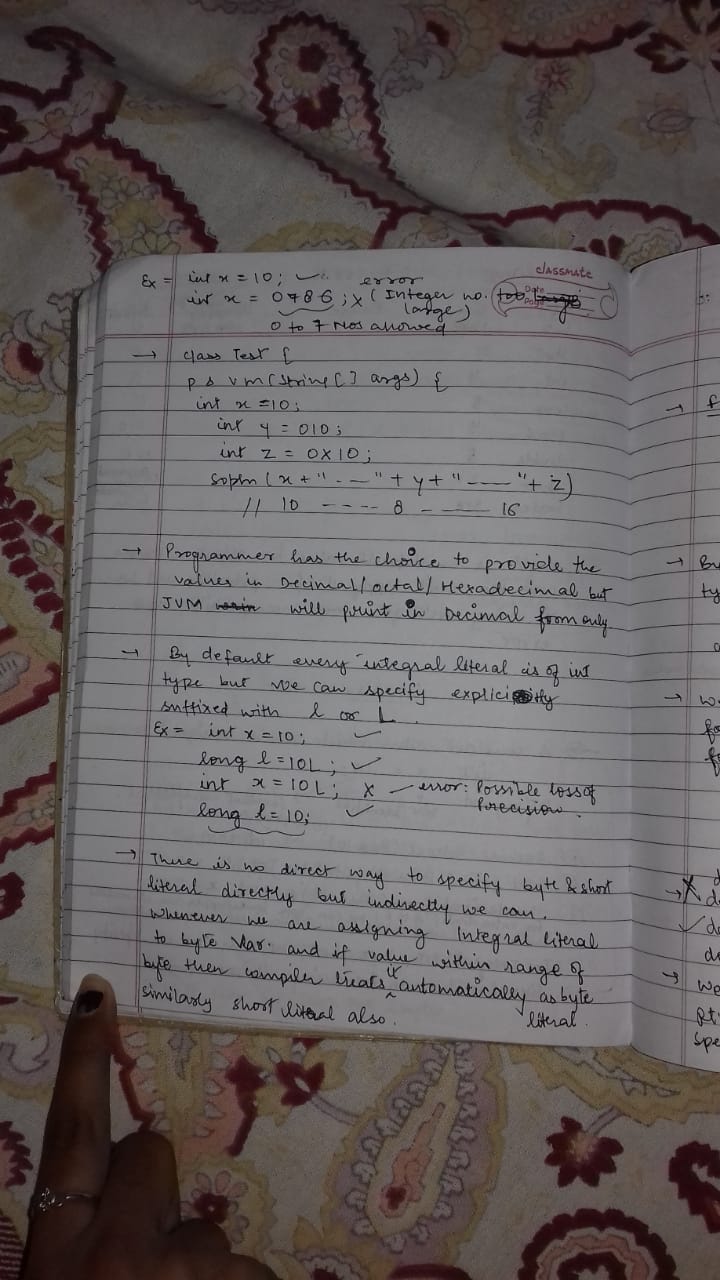 Ex = int x = 10; ✓
classmate
error
int x = 0786; X (Integer no. too large)
Date
Page
0 to 7 Nos allowed
→ class Test {
p s v m (String [] args) {
int x = 10;
int y = 010;
int z = 0X10;
sopln (x + "----" + y + "----" + z)
// 10 ---- 8 ---- 16
→ Programmer has the choice to provide the
values in Decimal/octal/Hexadecimal but
JVM will print in Decimal from only
→ By default every integral literal is of int
type but we can specify explicitly
suffixed with l or L.
Ex = int x = 10; ✓
long l = 10L; ✓
int x = 10L; X — error: Possible loss of
Precision.
long l = 10; ✓
→ There is no direct way to specify byte & short
literal directly but indirectly we can.
Whenever we are assigning Integral literal
to byte Var. and if value within range of
byte then compiler treats it automatically as byte
similarly short literal also. literal.